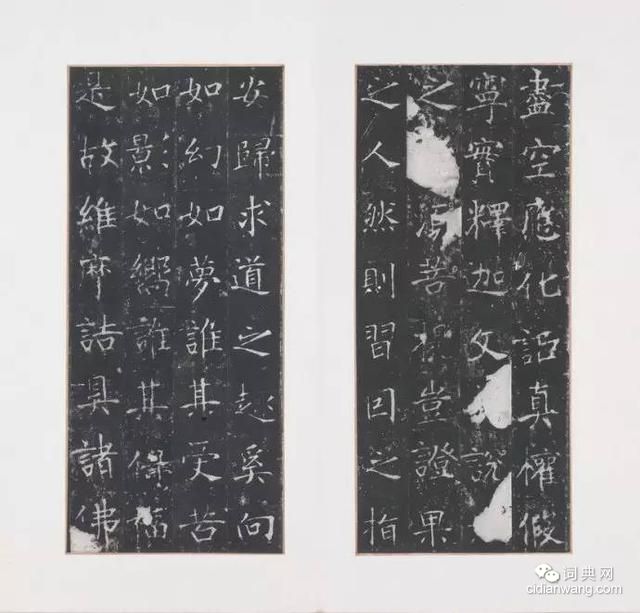 盡空應化詎真權假
寧實釋迦文說
之源菩提豈證果
之人然則習因之指
安歸求道之趣奚向
如幻如夢誰其受苦
如影如嚮誰其得福
是故維摩詰具諸佛
词典网
cidianwang.com